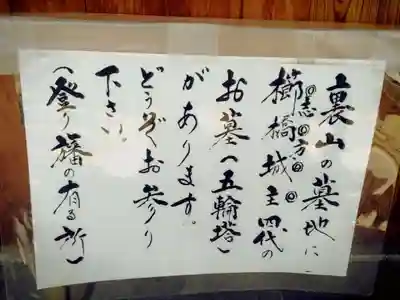 裏山の墓地に
志方
櫛橋城主四代の
お墓(五輪塔)
があります。
どうぞお参り
下さい。
(登り旛の有る所)